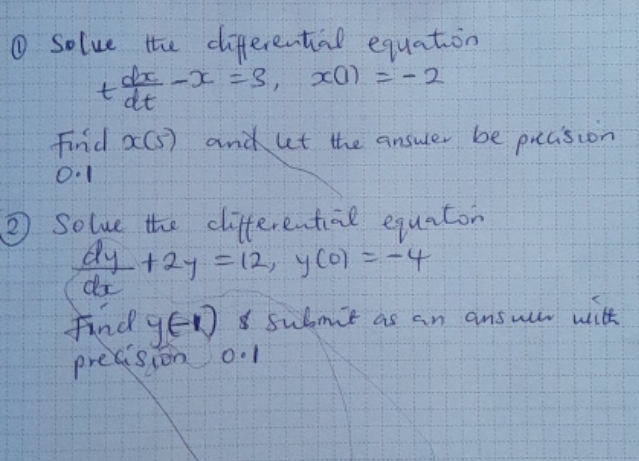 ① Solve the differential equation
t dx/dt - x = 3, x(1) = -2
Find x(5) and let the answer be precision
0.1
② Solve the differential equaton
dy/dx + 2y = 12, y(0) = -4
Find y(-1) & submit as an answer with
precision 0.1